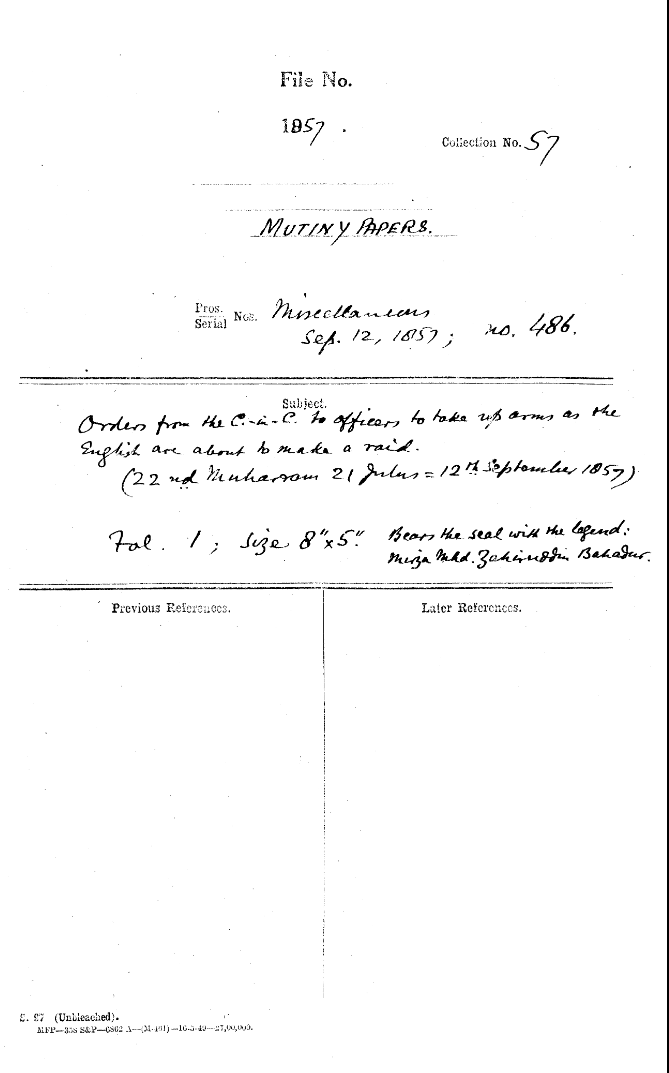 File No.
1857.
Collection No. 57
MUTINY PAPERS.
Pros.
Serial Nos. Miscellaneous
Sep. 12, 1857; no. 486.
Subject.
Orders from the C.-in-C. to officers to take up arms as the
English are about to make a raid.
(22nd Muharram 21 Julus = 12th September 1857)
Fol. 1; Size 8"x5". Bears the seal with the legend:
Mirza Mhd. Zahiruddin Bahadur.
Previous References.
Later References.
S. 97 (Unbleached).
MFP—358 S&P—6862 A—(M-491)—16-5-49—27,00,000.